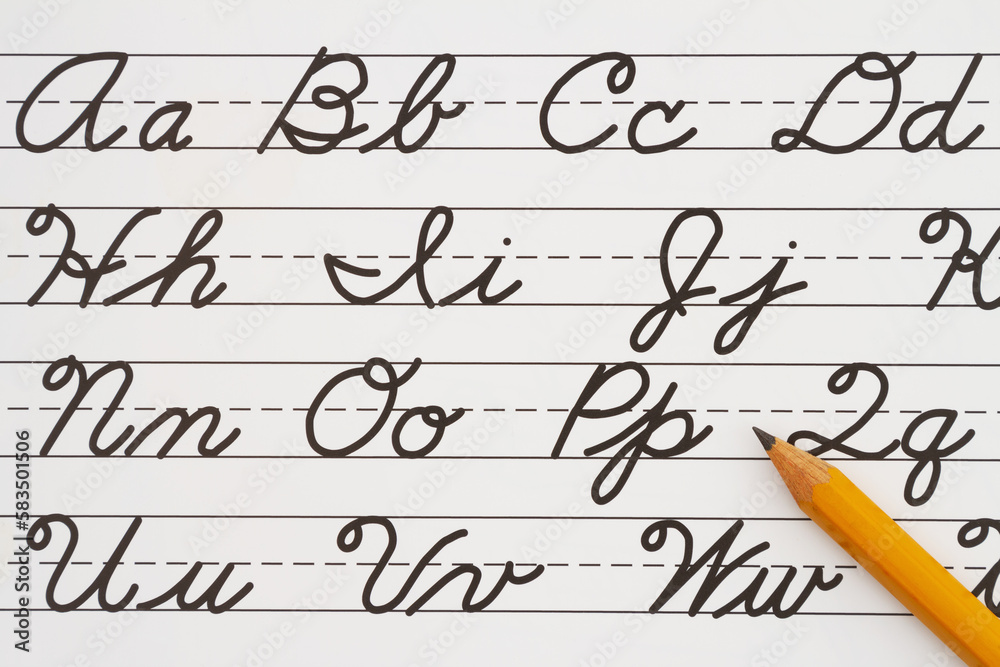 Aa Bb Cc Dd
Hh Ii Jj K
Nn Oo Pp Qq
Uu Vv Ww
Adobe Stock | #583501506